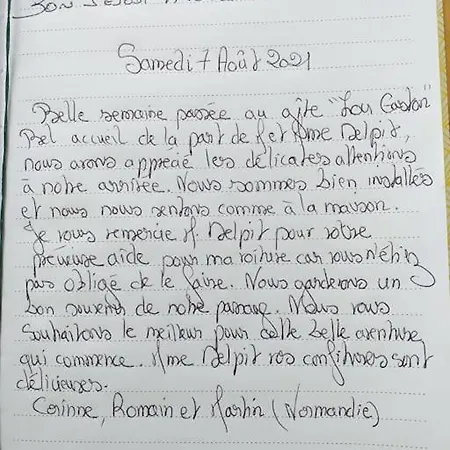 BON SEJOUR
Samedi 7 Août 2021
Belle semaine passée au gîte "Lou Gaston"
Bel accueil de la part de M et Mme Delpit,
nous avons apprécié les délicates attentions
à notre arrivée. Nous sommes bien installés
et nous nous sentons comme à la maison.
Je vous remercie M. Delpit pour votre
précieuse aide pour ma voiture car vous n'étiez
pas obligé de le faire. Nous garderons un
bon souvenir de notre passage. Nous vous
souhaitons le meilleur pour cette belle aventure
qui commence. Mme Delpit vos confitures sont
délicieuses.
Corinne, Romain et Martin (Normandie)